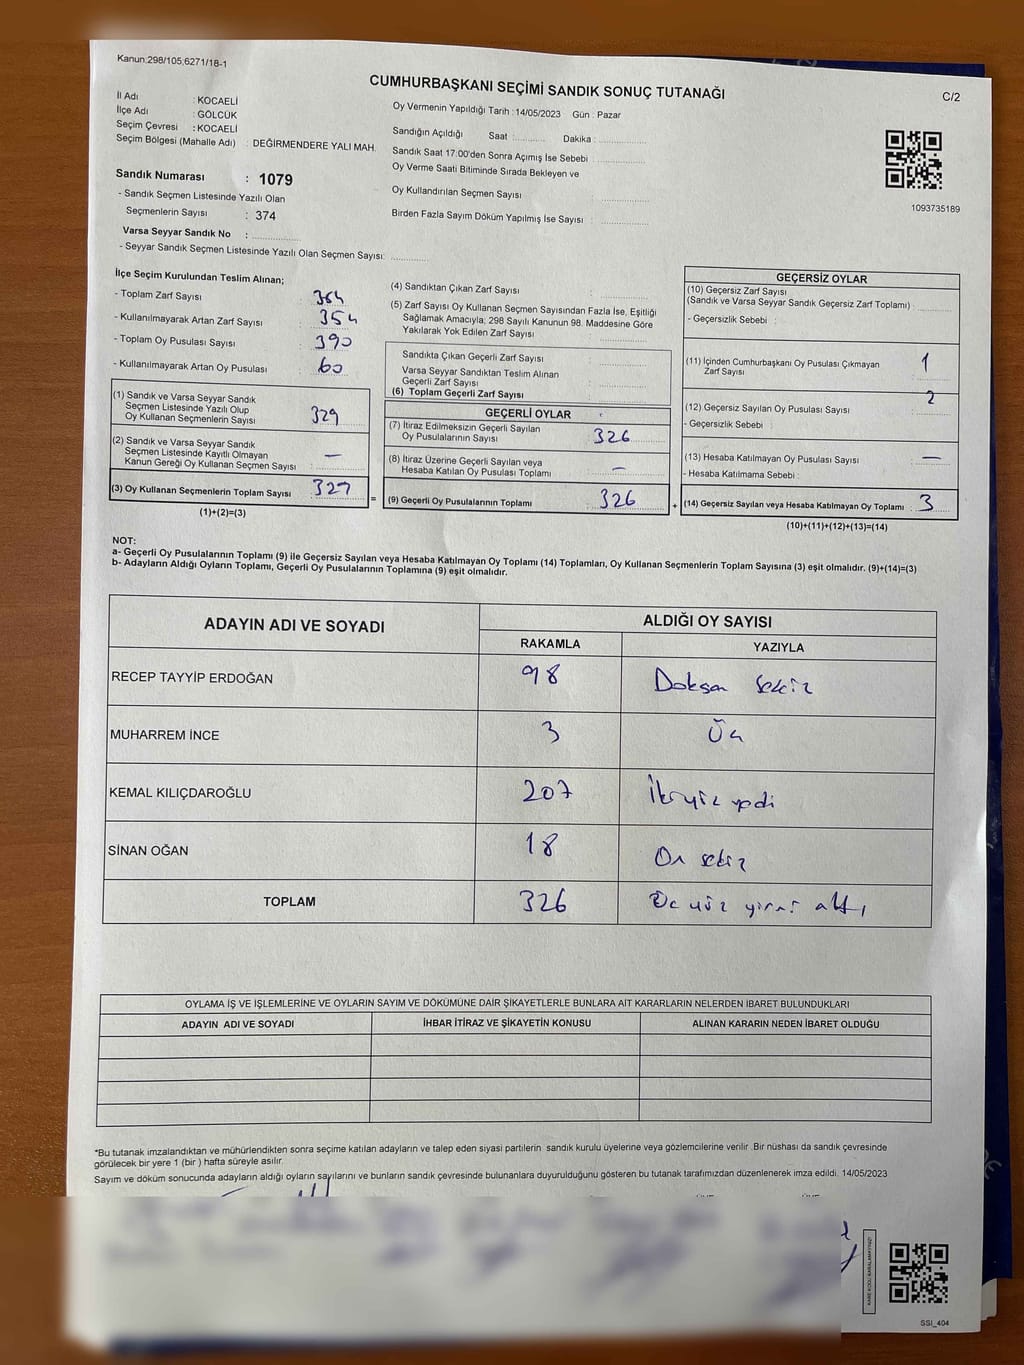 Kanun:298/105;6271/18-1
CUMHURBAŞKANI SEÇİMİ SANDIK SONUÇ TUTANAĞI
C/2
İl Adı : KOCAELİ
İlçe Adı : GÖLCÜK
Seçim Çevresi : KOCAELİ
Seçim Bölgesi (Mahalle Adı) : DEĞİRMENDERE YALI MAH.
Oy Vermenin Yapıldığı Tarih : 14/05/2023 Gün : Pazar
Sandığın Açıldığı Saat : Dakika :
Sandık Saat 17:00'den Sonra Açımış İse Sebebi
Oy Verme Saati Bitiminde Sırada Bekleyen ve
Oy Kullandırılan Seçmen Sayısı
Birden Fazla Sayım Döküm Yapılmış İse Sayısı :
1093735189
Sandık Numarası : 1079
- Sandık Seçmen Listesinde Yazılı Olan
Seçmenlerin Sayısı : 374
Varsa Seyyar Sandık No :
- Seyyar Sandık Seçmen Listesinde Yazılı Olan Seçmen Sayısı:
İlçe Seçim Kurulundan Teslim Alınan;
- Toplam Zarf Sayısı
- Kullanılmayarak Artan Zarf Sayısı : 354
- Toplam Oy Pusulası Sayısı : 390
- Kullanılmayarak Artan Oy Pusulası : 60
(1) Sandık ve Varsa Seyyar Sandık
Seçmen Listesinde Yazılı Olup
Oy Kullanan Seçmenlerin Sayısı : 329
(2) Sandık ve Varsa Seyyar Sandık
Seçmen Listesinde Kayıtlı Olmayan
Kanun Gereği Oy Kullanan Seçmen Sayısı : —
(3) Oy Kullanan Seçmenlerin Toplam Sayısı :
(1)+(2)=(3)
=
(4) Sandıktan Çıkan Zarf Sayısı :
(5) Zarf Sayısı Oy Kullanan Seçmen Sayısından Fazla İse, Eşitliği
Sağlamak Amacıyla; 298 Sayılı Kanunun 98. Maddesine Göre
Yakılarak Yok Edilen Zarf Sayısı
Sandıkta Çıkan Geçerli Zarf Sayısı
Varsa Seyyar Sandıktan Teslim Alınan
Geçerli Zarf Sayısı
(6) Toplam Geçerli Zarf Sayısı
GEÇERLİ OYLAR
(7) İtiraz Edilmeksizin Geçerli Sayılan
Oy Pusulalarının Sayısı 326
(8) İtiraz Üzerine Geçerli Sayılan veya
Hesaba Katılan Oy Pusulası Toplamı —
(9) Geçerli Oy Pusulalarının Toplamı 326
+
GEÇERSİZ OYLAR
(10) Geçersiz Zarf Sayısı
(Sandık ve Varsa Seyyar Sandık Geçersiz Zarf Toplamı) :
- Geçersizlik Sebebi :
(11) İçinden Cumhurbaşkanı Oy Pusulası Çıkmayan
Zarf Sayısı : 1
(12) Geçersiz Sayılan Oy Pusulası Sayısı : 2
- Geçersizlik Sebebi :
(13) Hesaba Katılmayan Oy Pusulası Sayısı : —
- Hesaba Katılmama Sebebi :
(14) Geçersiz Sayılan veya Hesaba Katılmayan Oy Toplamı : 3
(10)+(11)+(12)+(13)=(14)
NOT:
a- Geçerli Oy Pusulalarının Toplamı (9) ile Geçersiz Sayılan veya Hesaba Katılmayan Oy Toplamı (14) Toplamları, Oy Kullanan Seçmenlerin Toplam Sayısına (3) eşit olmalıdır. (9)+(14)=(3)
b- Adayların Aldığı Oyların Toplamı, Geçerli Oy Pusulalarının Toplamına (9) eşit olmalıdır.
ADAYIN ADI VE SOYADI
ALDIĞI OY SAYISI
RAKAMLA YAZIYLA
RECEP TAYYİP ERDOĞAN 98 Doksan sekiz
MUHARREM İNCE 3 Üç
KEMAL KILIÇDAROĞLU 207 İkiyüz yedi
SİNAN OĞAN 18 On sekiz
TOPLAM 326 Üç yüz yirmi altı
OYLAMA İŞ VE İŞLEMLERİNE VE OYLARIN SAYIM VE DÖKÜMÜNE DAİR ŞİKAYETLERLE BUNLARA AİT KARARLARIN NELERDEN İBARET BULUNDUKLARI
ADAYIN ADI VE SOYADI İHBAR İTİRAZ VE ŞİKAYETİN KONUSU ALINAN KARARIN NEDEN İBARET OLDUĞU
*Bu tutanak imzalandıktan ve mühürlendikten sonra seçime katılan adayların ve talep eden siyasi partilerin sandık kurulu üyelerine veya gözlemcilerine verilir. Bir nüshası da sandık çevresinde
görülecek bir yere 1 (bir ) hafta süreyle asılır.
Sayım ve döküm sonucunda adayların aldığı oyların sayılarını ve bunların sandık çevresinde bulunanlara duyurulduğunu gösteren bu tutanak tarafımızdan düzenlenerek imza edildi. 14/05/2023
KARE KODU KARALAMAYINIZ!
SSI_404